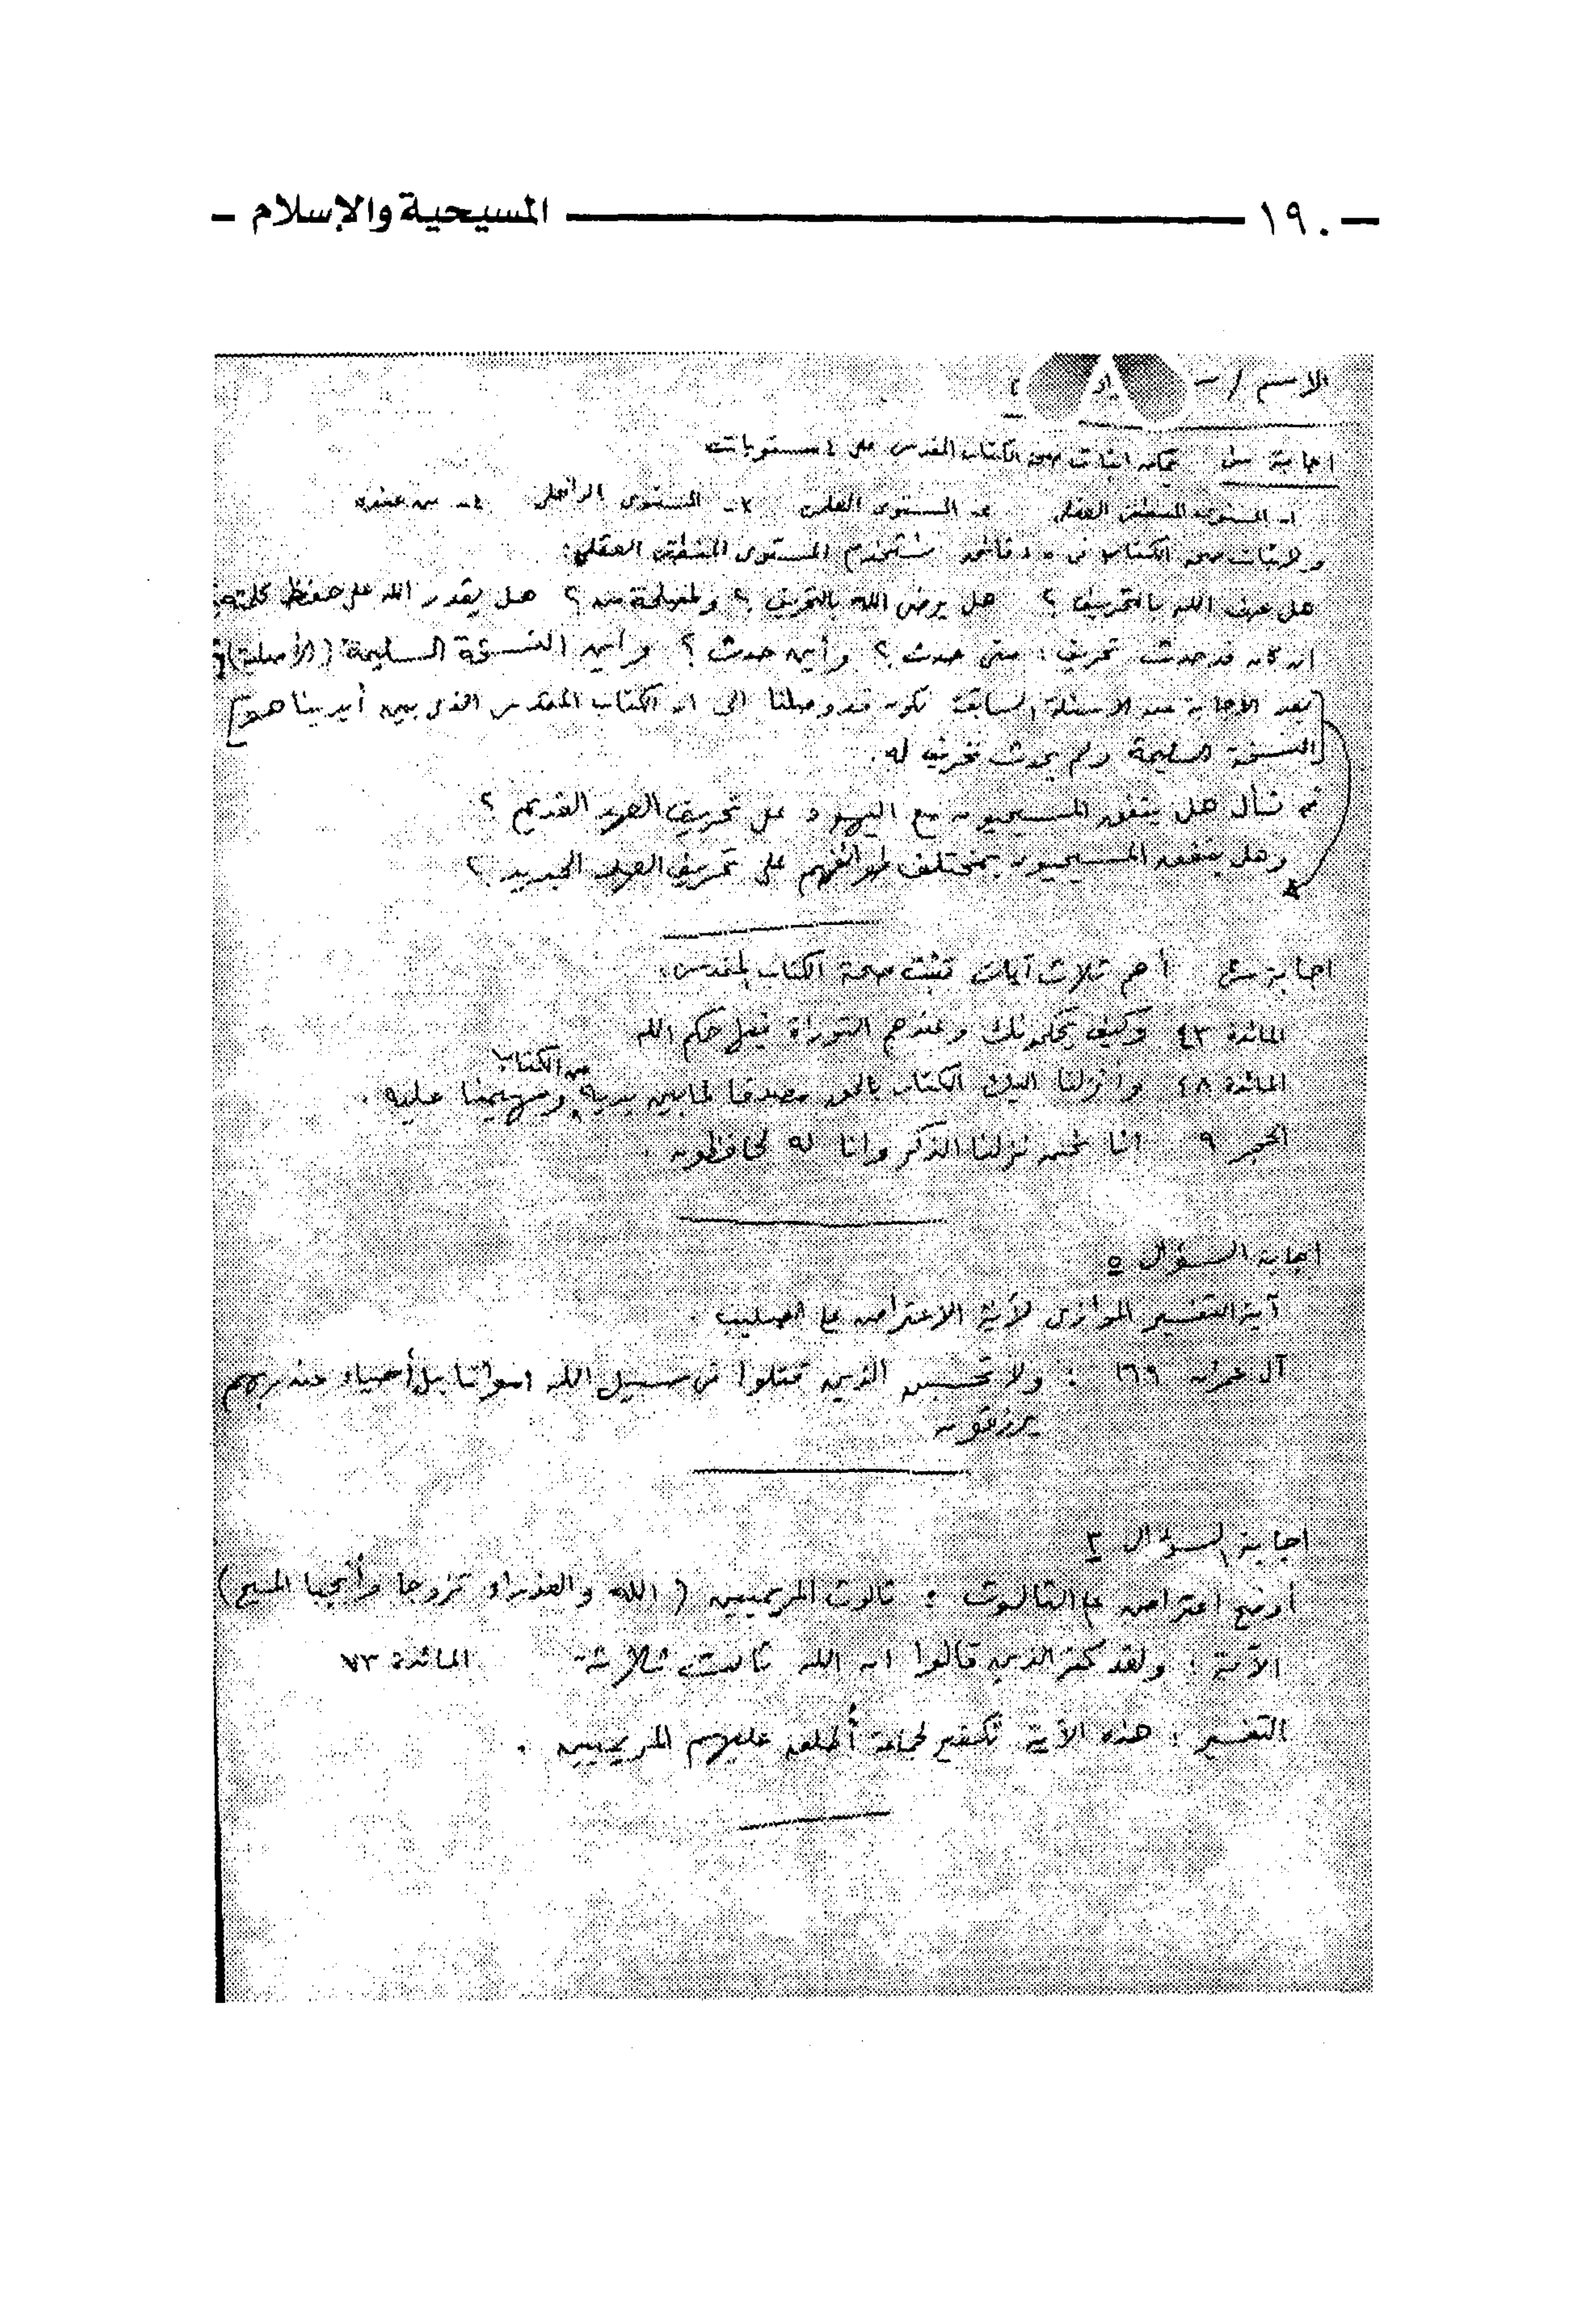 ١٩٠ المسيحية والإسلام
الاسم /
اجابة س١ يمكن اثبات صحة الكتاب المقدس على ٤ مستويات
١ـ المستوى المنطقى العقلى ٢ـ المستوى العلمى ٣ـ المستوى الداخلى ٤ـ
ولإثبات صحة الكتاب فى ٥ دقائق نستخدم المستوى المنطقى العقلى:
هل عرف الله بالتحريف ؟ هل يرضى الله بالتحريف ؟ ولمصلحة من ؟ هل يقدر الله على حفظ كلمته
ان كان قد حدث تحريف : متى حدث ؟ وأين حدث ؟ وأين النسخة السليمة (الأصلية)؟
[بعد الاجابة عن الاسئلة السابقة نكون قد وصلنا الى ان الكتاب المقدس الذى بين أيدينا هو
النسخة السليمة ولم يحدث تحريف له.]
ثم نسأل هل يتفق المسيحيون مع اليهود على تحريف العهد القديم ؟
وهل يتفق المسيحيون بمختلف طوائفهم على تحريف العهد الجديد ؟
اجابة أهم ثلاث آيات تثبت صحة الكتاب المقدس:
المائدة ٤٣ وكيف يحكمونك وعندهم التوراة فيها حكم الله
المائدة ٤٨ وأنزلنا اليك الكتاب بالحق مصدقا لما بين يديه من الكتاب ومهيمنا عليه .
الحجر ٩ انا نحن نزلنا الذكر وانا له لحافظون .
اجابة السؤال ٥
آية التفسير الموازى لآية الاعتراض على الصليب
آل عمران ١٦٩ : ولا تحسبن الذين قتلوا فى سبيل الله امواتا بل أحياء عند ربهم
يرزقون
اجابة السؤال ٢
أوضح اعتراض على الثالوث : ثالوث المريميين ( الله والعذراء تزوجا وأنجبا المسيح)
الآية : ولقد كفر الذين قالوا ان الله ثالث ثلاثة المائدة ٧٣
التفسير : هذه الآية تكفير لجماعة أُطلق عليهم المريميين .